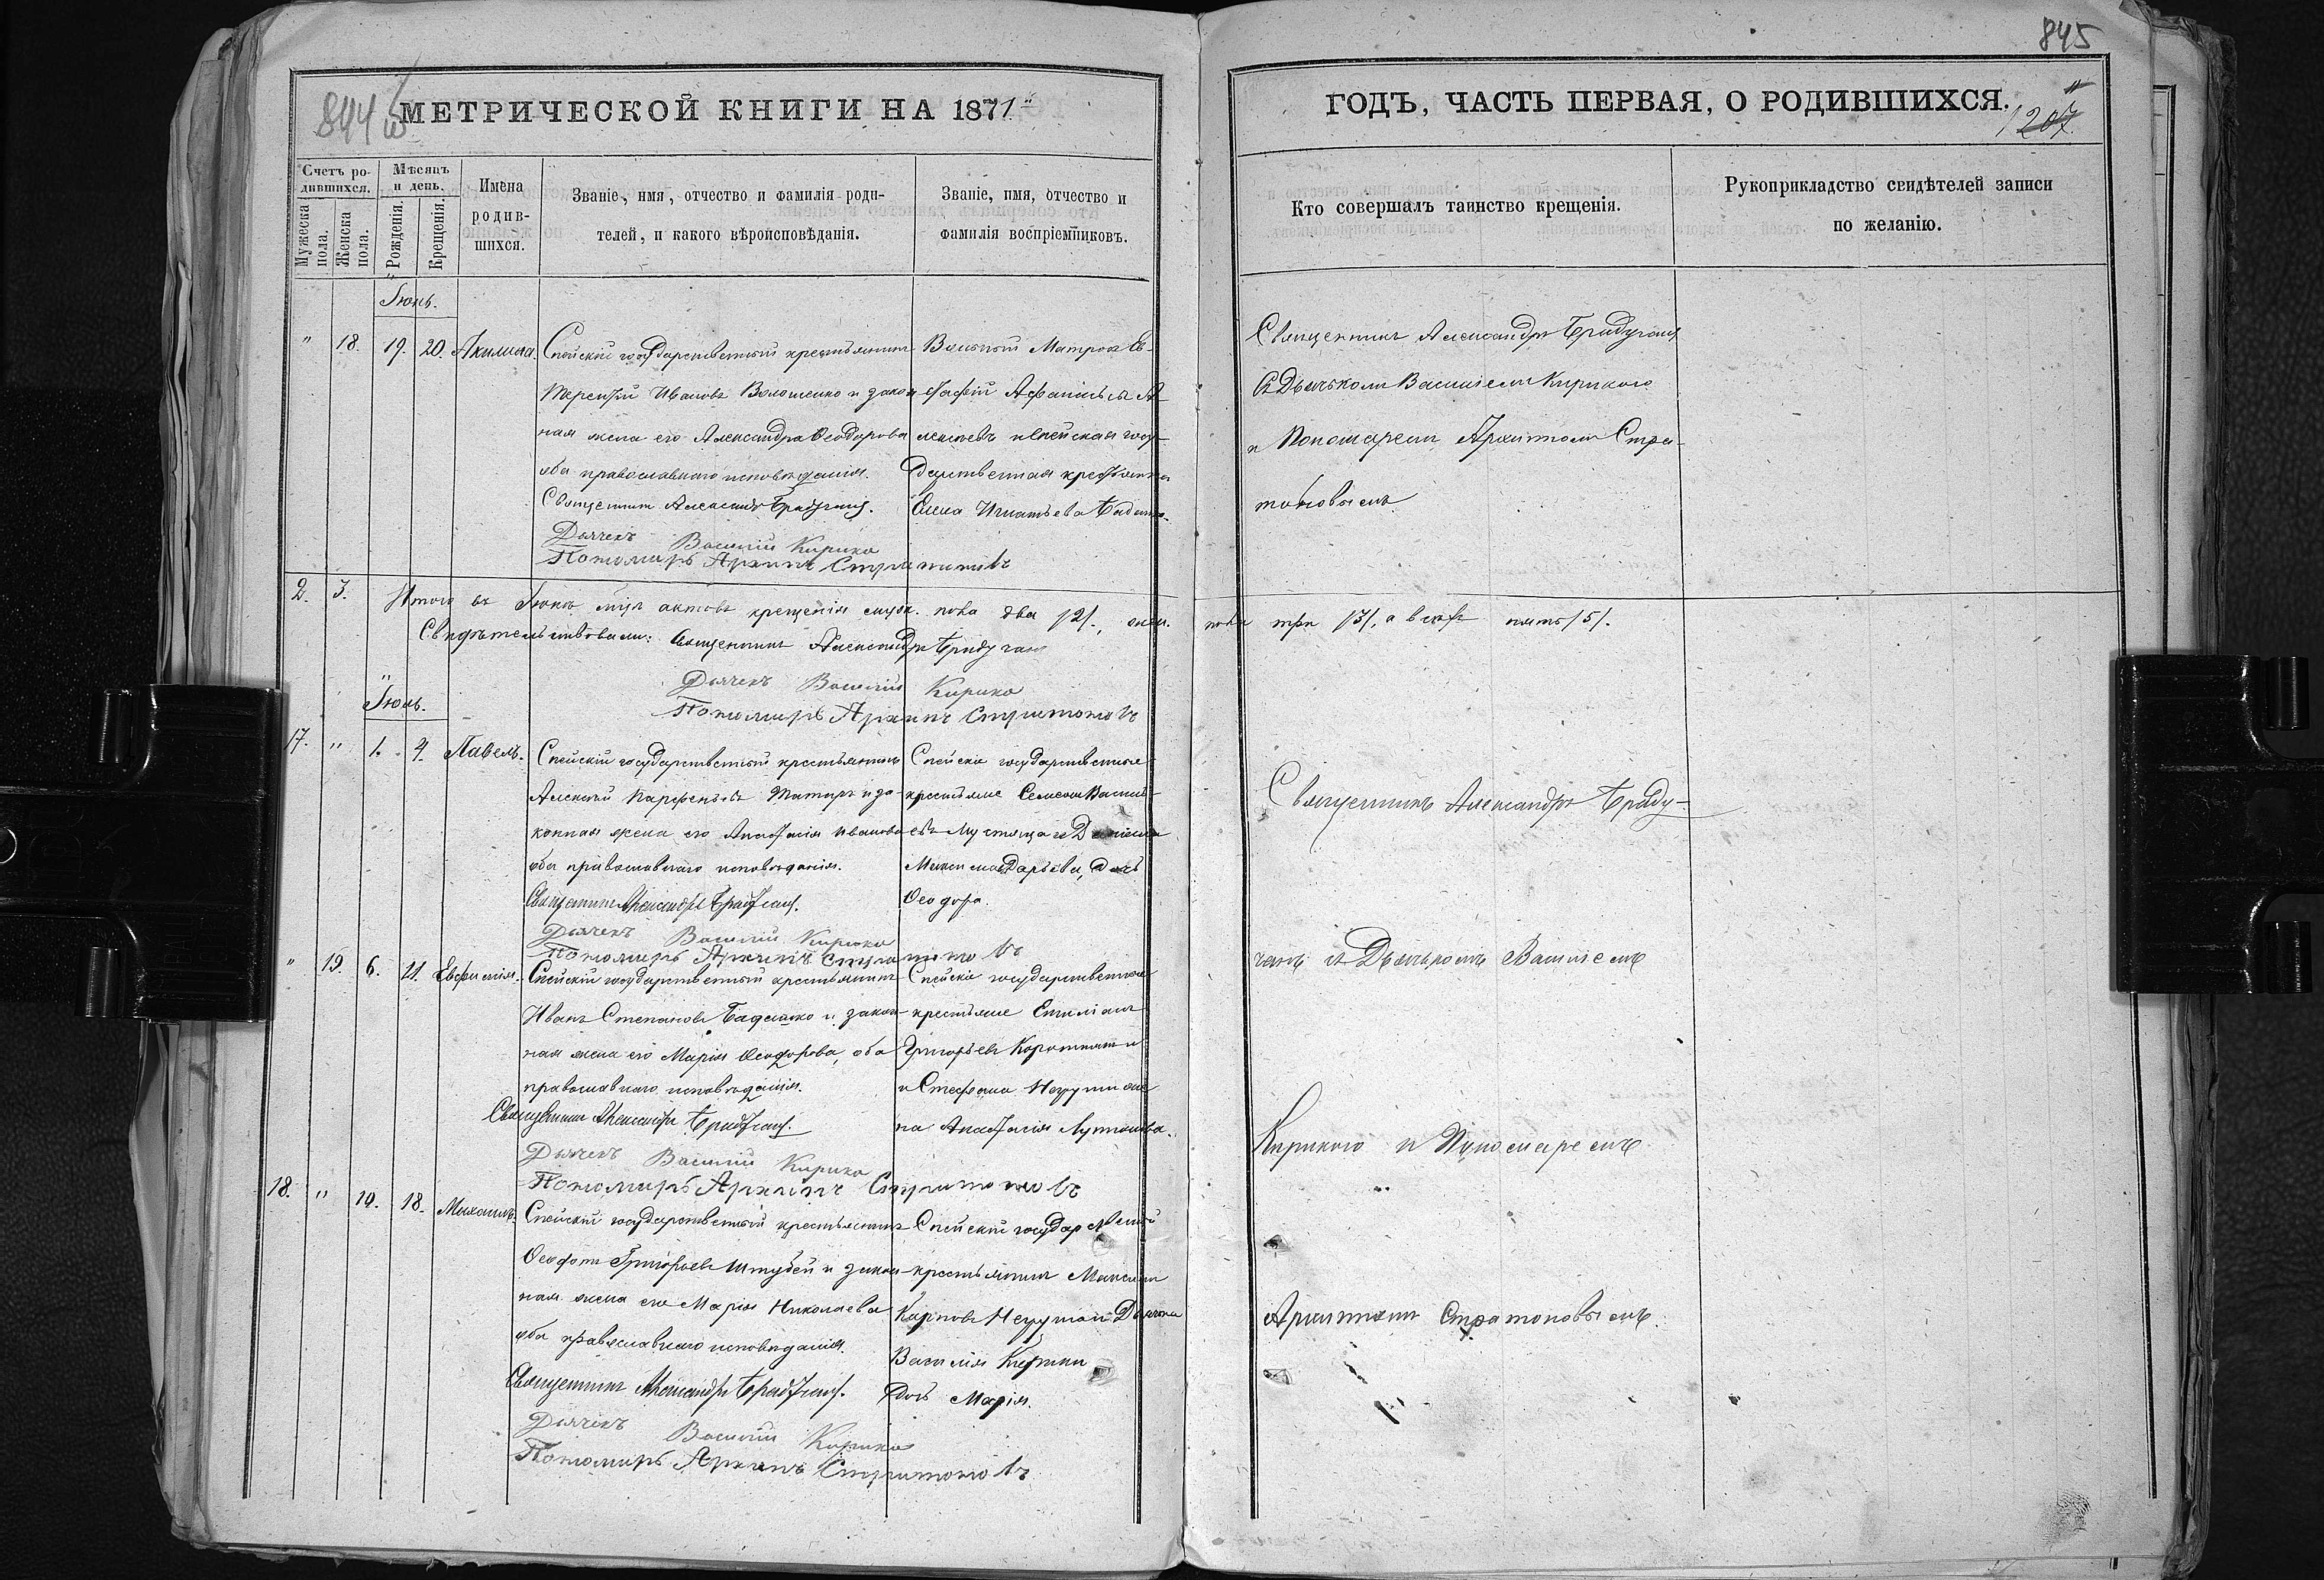 845
844
МЕТРИЧЕСКОЙ КНИГИ НА 1871
ГОДЪ, ЧАСТЬ ПЕРВАЯ, О РОДИВШИХСЯ.
1207.
Счетъ ро-
дившихся.
Мужеска
пола.
Женска
пола.
Мѣсяцъ
и день.
Рожденія.
Крещенія.
Имена
родив-
шихся.
Званіе, имя, отчество и фамилія роди-
телей, и какого вѣроисповѣданія.
Званіе, имя, отчество и
фамилія воспріемниковъ.
Кто совершалъ таинство крещенія.
Рукоприкладство свидѣтелей записи
по желанію.
Іюнь.
" 18. 19. 20. Акилина.
Спейскій государственный крестьянинъ
Терентій Ивановъ Волошенко и закон-
ная жена его Александра Ѳеодорова
оба православнаго исповѣданія.
Священникъ Александръ Брадучанъ.
Дячекъ Василій Кирика
Пономарь Архипъ Стратоновъ
и Спейская госу-
дарственная крестьянка
Елена Игнатьева
Священникъ Александръ Брадучанъ
съ Дьячкомъ Василіемъ Кирикою
и Пономаремъ Архипомъ Стра-
тоновымъ
2. 3. Итого въ Іюнѣ актовъ крещенія муж. пола два /2/, жен. пола три /3/, а всѣхъ пять /5/.
Свидѣтельствовали: Священникъ Александръ Брадучанъ
Дячекъ Василій Кирика
Пономарь Архипъ Стратоновъ
Іюль.
17. " 1. 4. Павелъ.
Спейскій государственный крестьянинъ
Алексій Парфеньевъ Татаръ и за-
конная жена его Анастасія Иванова
оба православнаго исповѣданія.
Священникъ Александръ Брадучанъ.
Дячекъ Василій Кирика
Пономарь Архипъ Стратоновъ
Спейскіе государственные
крестьяне Семенъ Василь-
евъ Мустяца и
дочь
Ѳеодора.
Священникъ Александръ Браду-
" 19. 6. 11. Евфимія.
Спейскій государственный крестьянинъ
Иванъ Степановъ Бадашко и закон-
ная жена его Марія Ѳеодорова, оба
православнаго исповѣданія.
Священникъ Александръ Брадучанъ.
Дячекъ Василій Кирика
Пономарь Архипъ Стратоновъ
Спейскіе государственные
крестьяне
Григорьевъ
и Стефана
на Анастасія
чанъ съ Дьячкомъ Василіемъ
Кирикою и Пономаремъ
18. " 10. 18. Михаилъ.
Спейскій государственный крестьянинъ
Ѳеодотъ Григорьевъ Штубей и закон-
ная жена его Марія Николаева
оба православнаго исповѣданія.
Священникъ Александръ Брадучанъ.
Дячекъ Василій Кирика
Пономарь Архипъ Стратоновъ
Спейскій государственный
крестьянинъ Максимъ
Карповъ Негруца и Дьячка
Василія Кирики
дочь Марія.
Архипомъ Стратоновымъ.